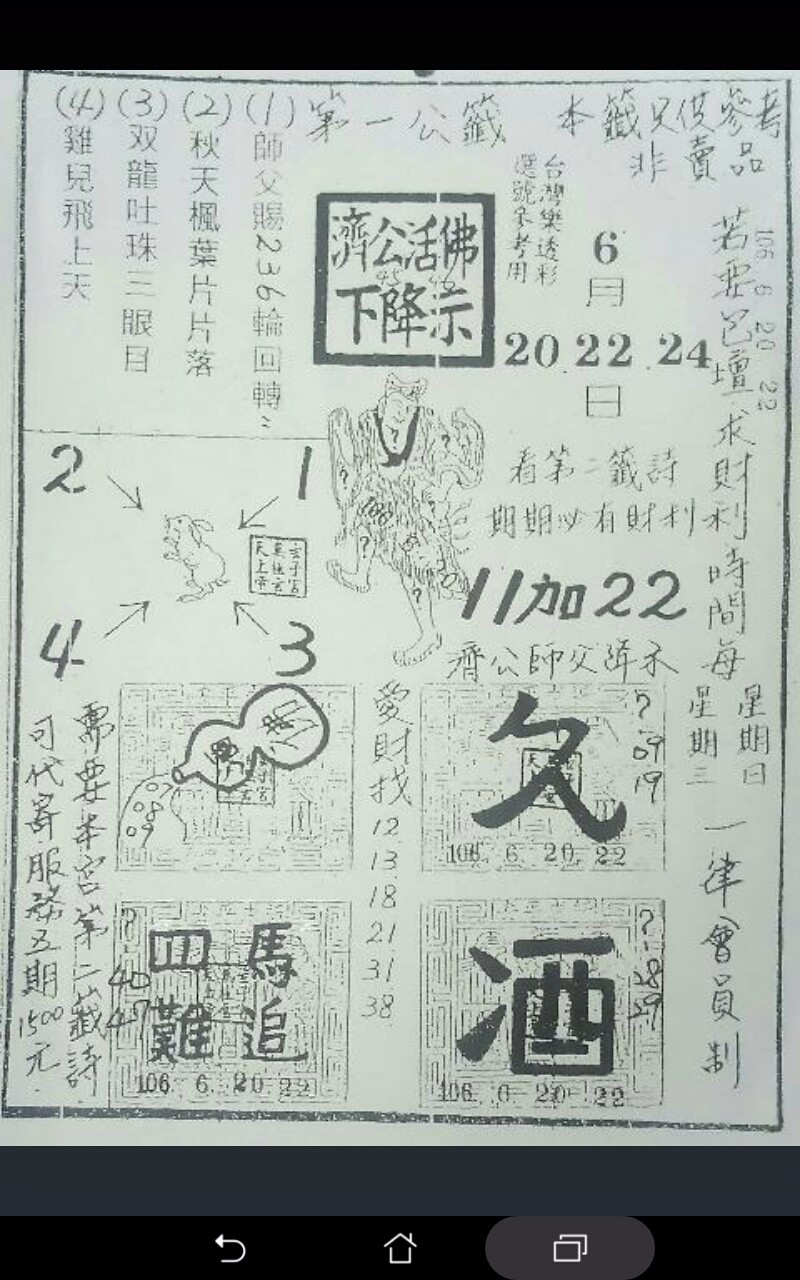 第一公籤
本籤只供參考
非賣品
(1)師父賜236輪回轉〃
(2)秋天楓葉片片落
(3)双龍吐珠三眼目
(4)雞兒飛上天
濟公活佛
下降示
台灣樂透彩
選號參考用
6
月
20.22.24
日
106 6 20 22
若要包壇求財利時間每
星期日
星期三
一律會員制
看第二籤詩
期期必有財利
11加22
濟公師父降示
2
1
4
3
玄子宮
天上帝
愛財找
12
13
18
21
31
38
久
?
09
19
106. 6. 20. 22
酒
?
28
29
106. 6. 20. 22
四馬
難追
?
40
106. 6. 20. 22
需要本宮第二籤詩
可代寄服務五期1500元